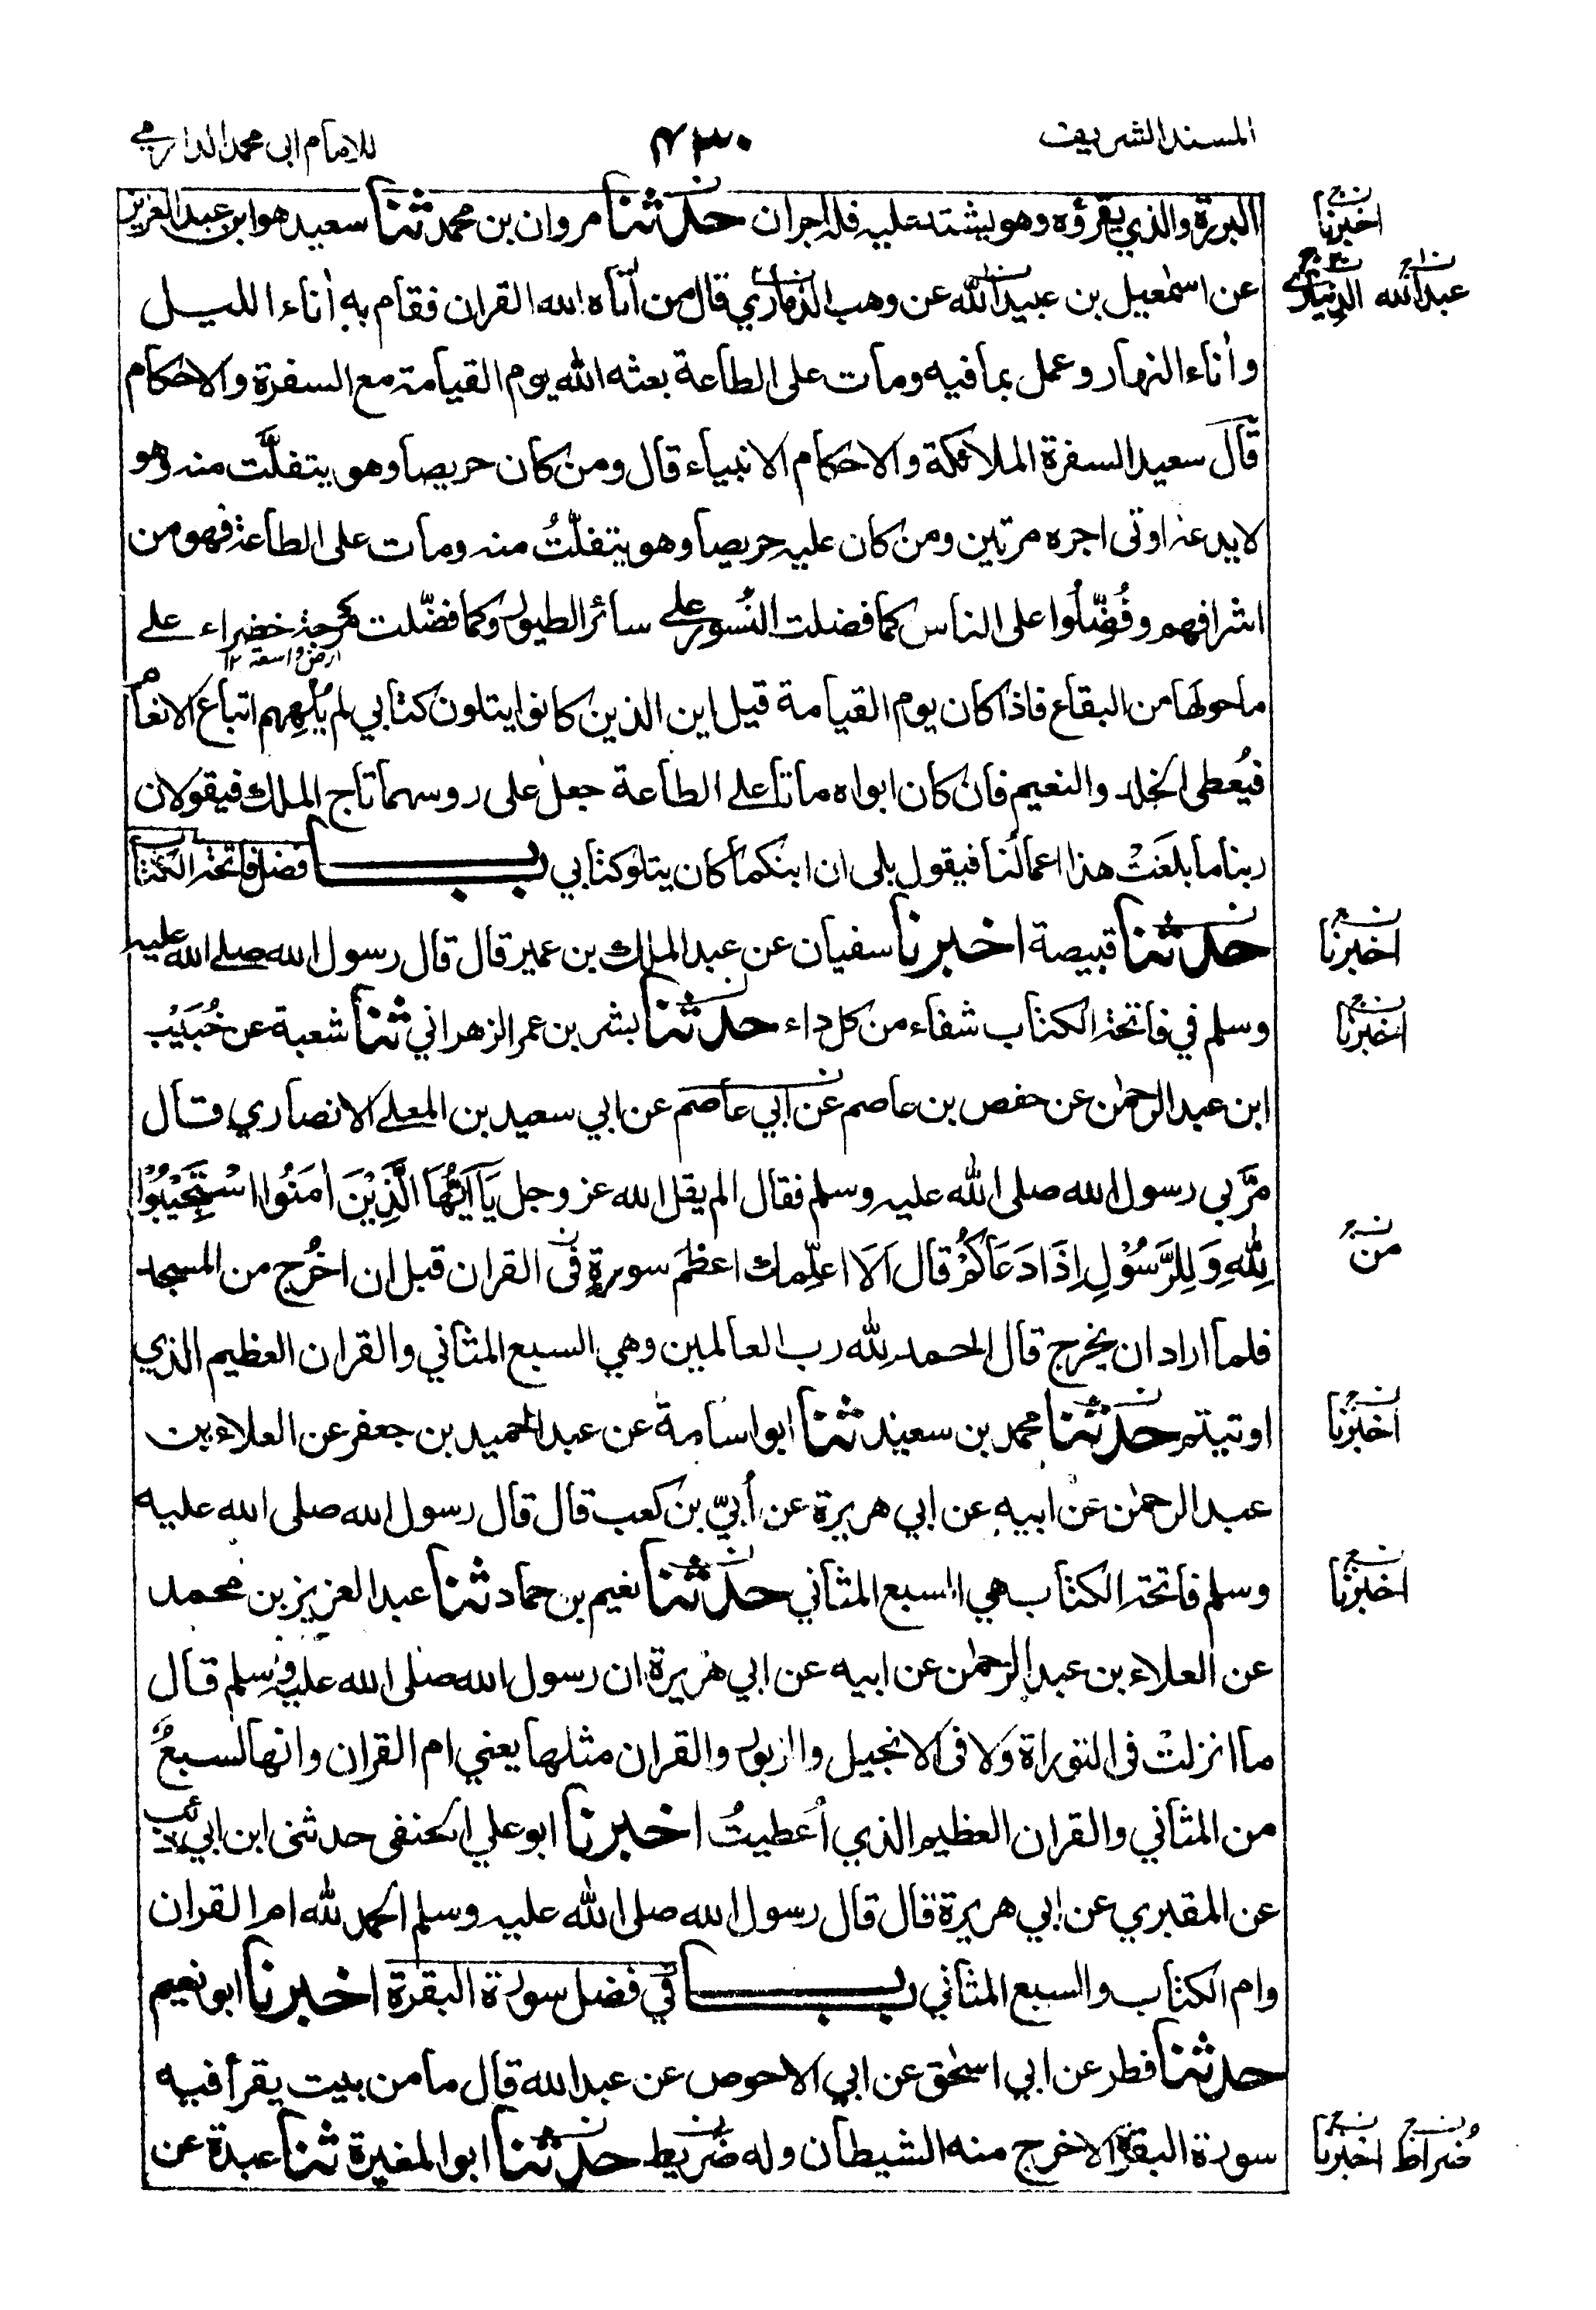 المسند الشريف
۴۳۰
للامام ابی محمد الدارمی
البررة والذي يقرؤه وهو يشتد عليه فله اجران حدثنا مروان بن محمد ثنا سعيد هو ابن عبد العزيز
اخبرنا
عن اسمٰعيل بن عبيد الله عن وهب الذماري قال من اٰتاه الله القران فقام به اٰناء الليل
عبد الله
واٰناء النهار وعمل بما فيه ومات على الطاعة بعثه الله يوم القيامة مع السفرة والاحكام
قال سعيد السفرة الملائكة والاحكام الانبياء قال ومن كان حريصا وهو يتفلّت منه وهو
لا يدعه اوتى اجره مرتين ومن كان عليه حريصا وهو يتفلّتُ منه ومات على الطاعة فهو من
اشرافهم وفُضِّلُوا على الناس كما فضلت النُسور على سائر الطيور وكما فضّلت مرجة خضراء على
ارض واسعة ۱۲
ما حولها من البقاع فاذا كان يوم القيامة قيل اين الذين كانوا يتلون كتابي لم يُلْهِهِم اتباع الانعام
فيُعطى الخلد والنعيم فان كان ابواه ماتا على الطاعة جعل على روسهما تاج الملك فيقولان
ربنا ما بلغَتْ هذا اعمالُنا فيقول بلى ان ابنكما كان يتلو كتابي باب فضل فاتحة الكتاب
حدثنا قبيصة اخبرنا سفيان عن عبد الملك بن عمير قال قال رسول الله صلى الله عليه
اخبرنا
وسلم في فاتحة الكتاب شفاء من كل داء حدثنا بشر بن عمر الزهراني ثنا شعبة عن خُبَيْب
اخبرنا
ابن عبد الرحمٰن عن حفص بن عاصم عن ابي عاصم عن ابي سعيد بن المعلى الانصاري قال
مرَّ بي رسول الله صلى الله عليه وسلم فقال الم يقل الله عز وجل يَآ اَيُّهَا الَّذِيْنَ اٰمَنُوا اسْتَجِيْبُوْا
لِلّٰهِ وَلِلرَّسُوْلِ اِذَا دَعَاكُمْ قال اَلَا اعلّمك اعظمَ سورةٍ فى القران قبل ان اخُرج من المسجد
من
فلما اراد ان يخرج قال الحمد لله رب العالمين وهي السبع المثاني والقران العظيم الذي
اوتيتم حدثنا محمد بن سعيد ثنا ابو اسامة عن عبد الحميد بن جعفر عن العلاء بن
اخبرنا
عبد الرحمٰن عن ابيه عن ابي هريرة عن أبيّ بن كعب قال قال رسول الله صلى الله عليه
وسلم فاتحة الكتاب هي السبع المثاني حدثنا نعيم بن حماد ثنا عبد العزيز بن محمد
اخبرنا
عن العلاء بن عبد الرحمٰن عن ابيه عن ابي هريرة ان رسول الله صلى الله عليه وسلم قال
ما انزلتْ فى التوراة ولا فى الانجيل والزبور والقران مثلها يعني ام القران وانها لسبعٌ
من المثاني والقران العظيم الذي اُعطيتُ اخبرنا ابو علي الحنفى حدثنى ابن ابي ذئب
عن المقبري عن ابي هريرة قال قال رسول الله صلى الله عليه وسلم الحمد لله ام القران
وام الكتاب والسبع المثاني باب في فضل سورة البقرة اخبرنا ابو نعيم
حدثنا فطر عن ابي اسحٰق عن ابي الاحوص عن عبد الله قال ما من بيت يقرأ فيه
سورة البقرة الا خرج منه الشيطان وله ضريط حدثنا ابو المغيرة ثنا عبدة عن
اخبرنا ضُراط